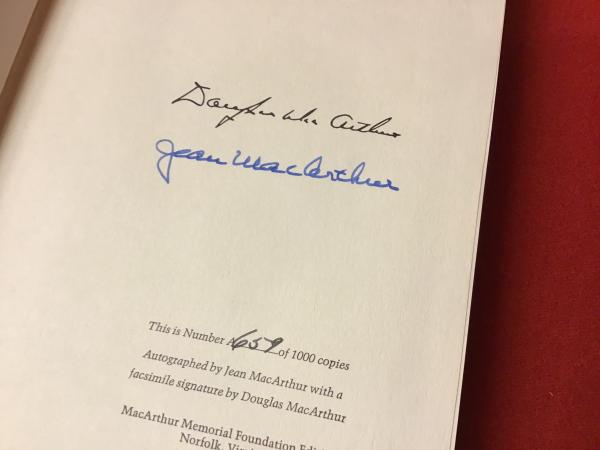 Douglas MacArthur
Jean MacArthur
This is Number A659 of 1000 copies
Autographed by Jean MacArthur with a
facsimile signature by Douglas MacArthur
MacArthur Memorial Foundation
Norfolk,